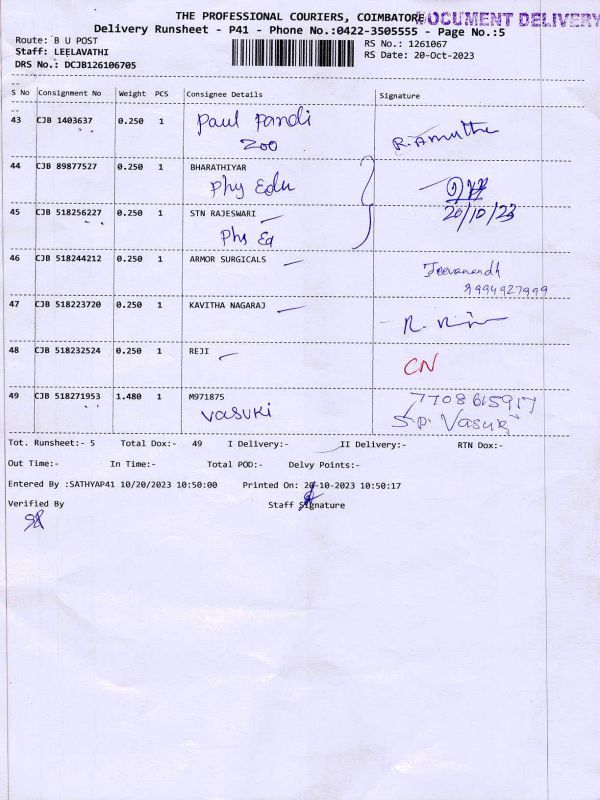 THE PROFESSIONAL COURIERS, COIMBATORE
DOCUMENT DELIVERY
Delivery Runsheet - P41 - Phone No.:0422-3505555 - Page No.:5
Route: B U POST
RS No.: 1261067
Staff: LEELAVATHI
RS Date: 20-Oct-2023
DRS No.: DCJB126106705
S No Consignment No Weight PCS Consignee Details Signature
43 CJB 1403637 0.250 1 Paul Pandi R. Amutha
Zoo
44 CJB 89877527 0.250 1 BHARATHIYAR
Phy Edu
20/10/23
45 CJB 518256227 0.250 1 STN RAJESWARI
Phs Ed
46 CJB 518244212 0.250 1 ARMOR SURGICALS Jeevanandh
9994927999
47 CJB 518223720 0.250 1 KAVITHA NAGARAJ R.
48 CJB 518232524 0.250 1 REJI CN
49 CJB 518271953 1.480 1 M971875 7708615917
Vasuki S.P. Vasuki
Tot. Runsheet:- 5 Total Dox:- 49 I Delivery:- II Delivery:- RTN Dox:-
Out Time:- In Time:- Total POD:- Delvy Points:-
Entered By :SATHYAP41 10/20/2023 10:50:00 Printed On: 20-10-2023 10:50:17
Verified By Staff Signature